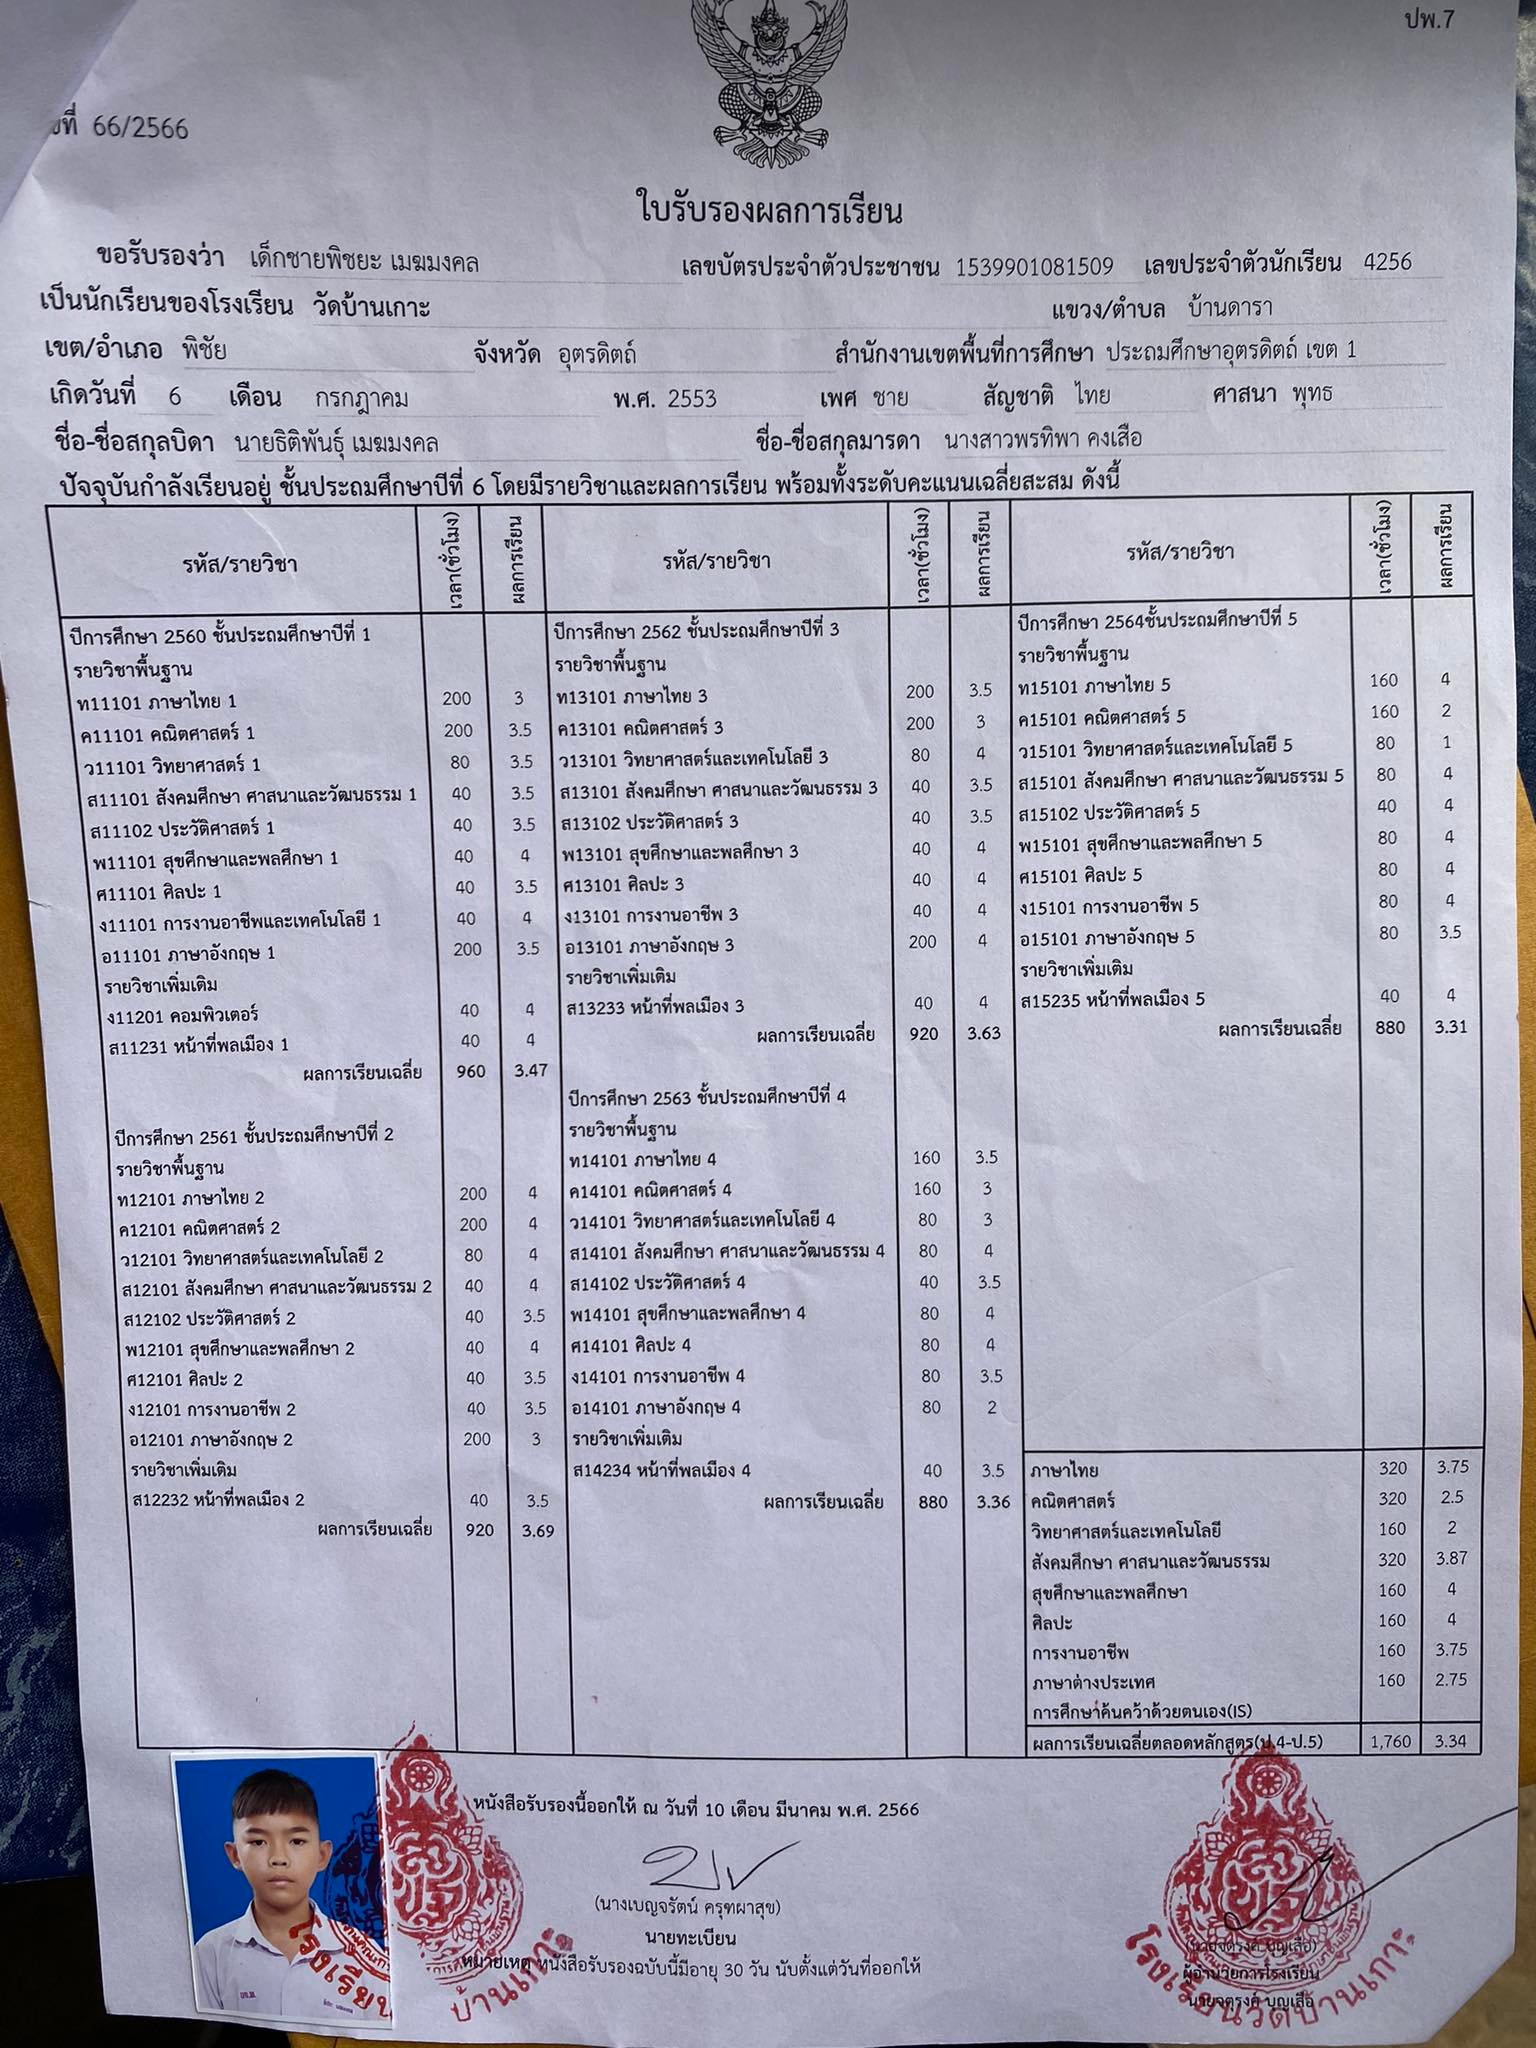 ปพ.7
ที่ 66/2566
ใบรับรองผลการเรียน
ขอรับรองว่า เด็กชายพิชยะ เมฆมงคล เลขบัตรประจำตัวประชาชน 1539901081509 เลขประจำตัวนักเรียน 4256
เป็นนักเรียนของโรงเรียน วัดบ้านเกาะ แขวง/ตำบล บ้านดารา
เขต/อำเภอ พิชัย จังหวัด อุตรดิตถ์ สำนักงานเขตพื้นที่การศึกษา ประถมศึกษาอุตรดิตถ์ เขต 1
เกิดวันที่ 6 เดือน กรกฎาคม พ.ศ. 2553 เพศ ชาย สัญชาติ ไทย ศาสนา พุทธ
ชื่อ-ชื่อสกุลบิดา นายธิติพันธุ์ เมฆมงคล ชื่อ-ชื่อสกุลมารดา นางสาวพรทิพา คงเสือ
ปัจจุบันกำลังเรียนอยู่ ชั้นประถมศึกษาปีที่ 6 โดยมีรายวิชาและผลการเรียน พร้อมทั้งระดับคะแนนเฉลี่ยสะสม ดังนี้
รหัส/รายวิชา เวลา(ชั่วโมง) ผลการเรียน
ปีการศึกษา 2560 ชั้นประถมศึกษาปีที่ 1
รายวิชาพื้นฐาน
ท11101 ภาษาไทย 1 200 3
ค11101 คณิตศาสตร์ 1 200 3.5
ว11101 วิทยาศาสตร์ 1 80 3.5
ส11101 สังคมศึกษา ศาสนาและวัฒนธรรม 1 40 3.5
ส11102 ประวัติศาสตร์ 1 40 3.5
พ11101 สุขศึกษาและพลศึกษา 1 40 4
ศ11101 ศิลปะ 1 40 3.5
ง11101 การงานอาชีพและเทคโนโลยี 1 40 4
อ11101 ภาษาอังกฤษ 1 200 3.5
รายวิชาเพิ่มเติม
ง11201 คอมพิวเตอร์ 40 4
ส11231 หน้าที่พลเมือง 1 40 4
ผลการเรียนเฉลี่ย 960 3.47
ปีการศึกษา 2561 ชั้นประถมศึกษาปีที่ 2
รายวิชาพื้นฐาน
ท12101 ภาษาไทย 2 200 4
ค12101 คณิตศาสตร์ 2 200 4
ว12101 วิทยาศาสตร์และเทคโนโลยี 2 80 4
ส12101 สังคมศึกษา ศาสนาและวัฒนธรรม 2 40 4
ส12102 ประวัติศาสตร์ 2 40 3.5
พ12101 สุขศึกษาและพลศึกษา 2 40 4
ศ12101 ศิลปะ 2 40 3.5
ง12101 การงานอาชีพ 2 40 3.5
อ12101 ภาษาอังกฤษ 2 200 3
รายวิชาเพิ่มเติม
ส12232 หน้าที่พลเมือง 2 40 3.5
ผลการเรียนเฉลี่ย 920 3.69
รหัส/รายวิชา เวลา(ชั่วโมง) ผลการเรียน
ปีการศึกษา 2562 ชั้นประถมศึกษาปีที่ 3
รายวิชาพื้นฐาน
ท13101 ภาษาไทย 3 200 3.5
ค13101 คณิตศาสตร์ 3 200 3
ว13101 วิทยาศาสตร์และเทคโนโลยี 3 80 4
ส13101 สังคมศึกษา ศาสนาและวัฒนธรรม 3 40 3.5
ส13102 ประวัติศาสตร์ 3 40 3.5
พ13101 สุขศึกษาและพลศึกษา 3 40 4
ศ13101 ศิลปะ 3 40 4
ง13101 การงานอาชีพ 3 40 4
อ13101 ภาษาอังกฤษ 3 200 4
รายวิชาเพิ่มเติม
ส13233 หน้าที่พลเมือง 3 40 4
ผลการเรียนเฉลี่ย 920 3.63
ปีการศึกษา 2563 ชั้นประถมศึกษาปีที่ 4
รายวิชาพื้นฐาน
ท14101 ภาษาไทย 4 160 3.5
ค14101 คณิตศาสตร์ 4 160 3
ว14101 วิทยาศาสตร์และเทคโนโลยี 4 80 3
ส14101 สังคมศึกษา ศาสนาและวัฒนธรรม 4 80 4
ส14102 ประวัติศาสตร์ 4 40 3.5
พ14101 สุขศึกษาและพลศึกษา 4 80 4
ศ14101 ศิลปะ 4 80 4
ง14101 การงานอาชีพ 4 80 3.5
อ14101 ภาษาอังกฤษ 4 80 2
รายวิชาเพิ่มเติม
ส14234 หน้าที่พลเมือง 4 40 3.5
ผลการเรียนเฉลี่ย 880 3.36
รหัส/รายวิชา เวลา(ชั่วโมง) ผลการเรียน
ปีการศึกษา 2564ชั้นประถมศึกษาปีที่ 5
รายวิชาพื้นฐาน
ท15101 ภาษาไทย 5 160 4
ค15101 คณิตศาสตร์ 5 160 2
ว15101 วิทยาศาสตร์และเทคโนโลยี 5 80 1
ส15101 สังคมศึกษา ศาสนาและวัฒนธรรม 5 80 4
ส15102 ประวัติศาสตร์ 5 40 4
พ15101 สุขศึกษาและพลศึกษา 5 80 4
ศ15101 ศิลปะ 5 80 4
ง15101 การงานอาชีพ 5 80 4
อ15101 ภาษาอังกฤษ 5 80 3.5
รายวิชาเพิ่มเติม
ส15235 หน้าที่พลเมือง 5 40 4
ผลการเรียนเฉลี่ย 880 3.31
ภาษาไทย 320 3.75
คณิตศาสตร์ 320 2.5
วิทยาศาสตร์และเทคโนโลยี 160 2
สังคมศึกษา ศาสนาและวัฒนธรรม 320 3.87
สุขศึกษาและพลศึกษา 160 4
ศิลปะ 160 4
การงานอาชีพ 160 3.75
ภาษาต่างประเทศ 160 2.75
การศึกษาค้นคว้าด้วยตนเอง(IS)
ผลการเรียนเฉลี่ยตลอดหลักสูตร(ป.4-ป.5) 1,760 3.34
หนังสือรับรองนี้ออกให้ ณ วันที่ 10 เดือน มีนาคม พ.ศ. 2566
(นางเบญจรัตน์ ครุฑผาสุข)
นายทะเบียน
หมายเหตุ หนังสือรับรองฉบับนี้มีอายุ 30 วัน นับตั้งแต่วันที่ออกให้
(นายจตุรงค์ บุญเสือ)
ผู้อำนวยการโรงเรียน
นายจตุรงค์ บุญเสือ
โรงเรียน บ้านเกาะ
โรงเรียนวัดบ้านเกาะ